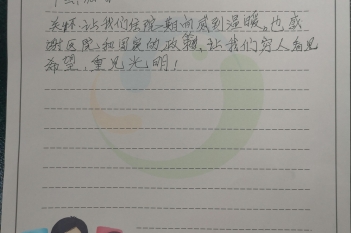 关怀,让我们住院期间感到温暖。也感
谢医院和国家的政策,让我们穷人看见
希望,重见光明!